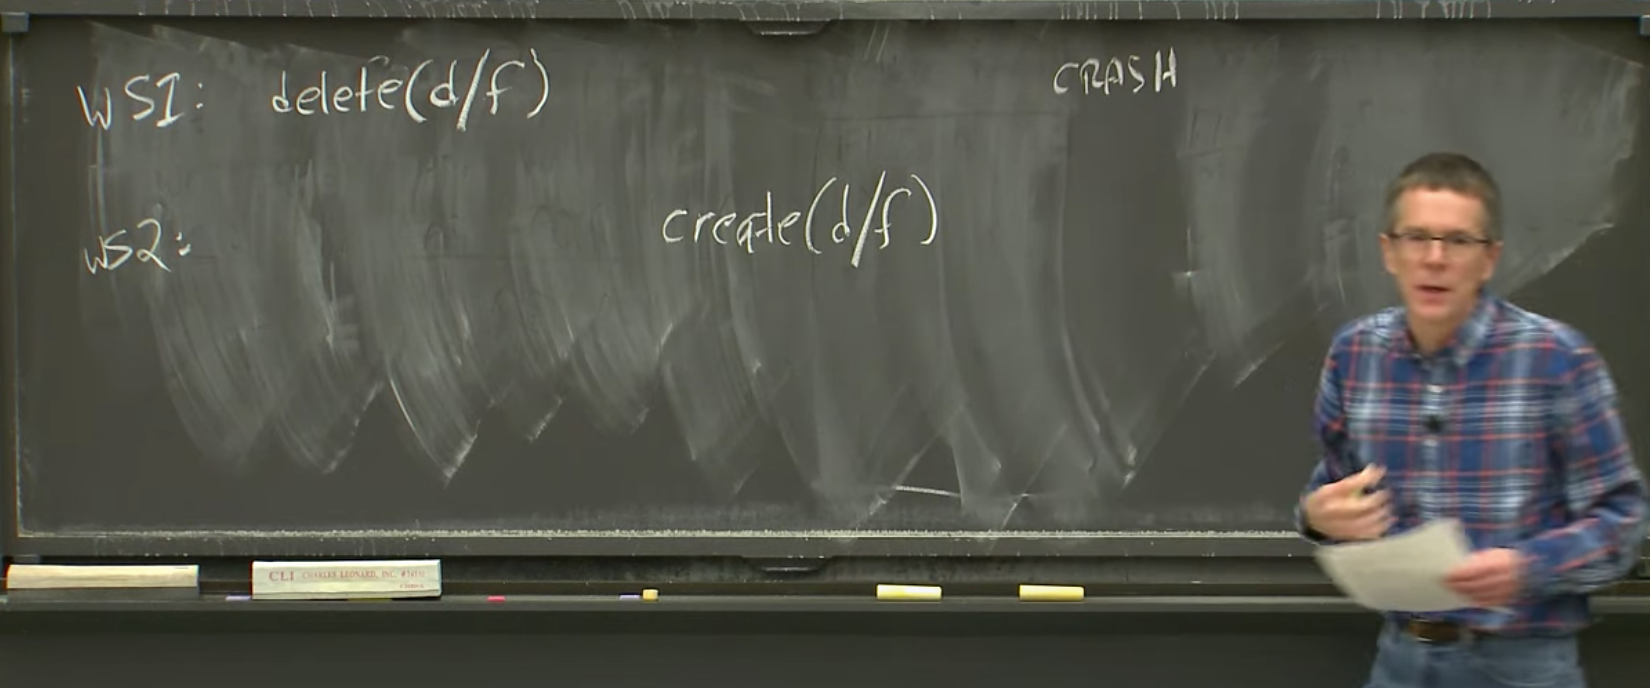 WS1: delete(d/f) CRASH
WS2: create(d/f)
CLI CHARLES LEONARD, INC.